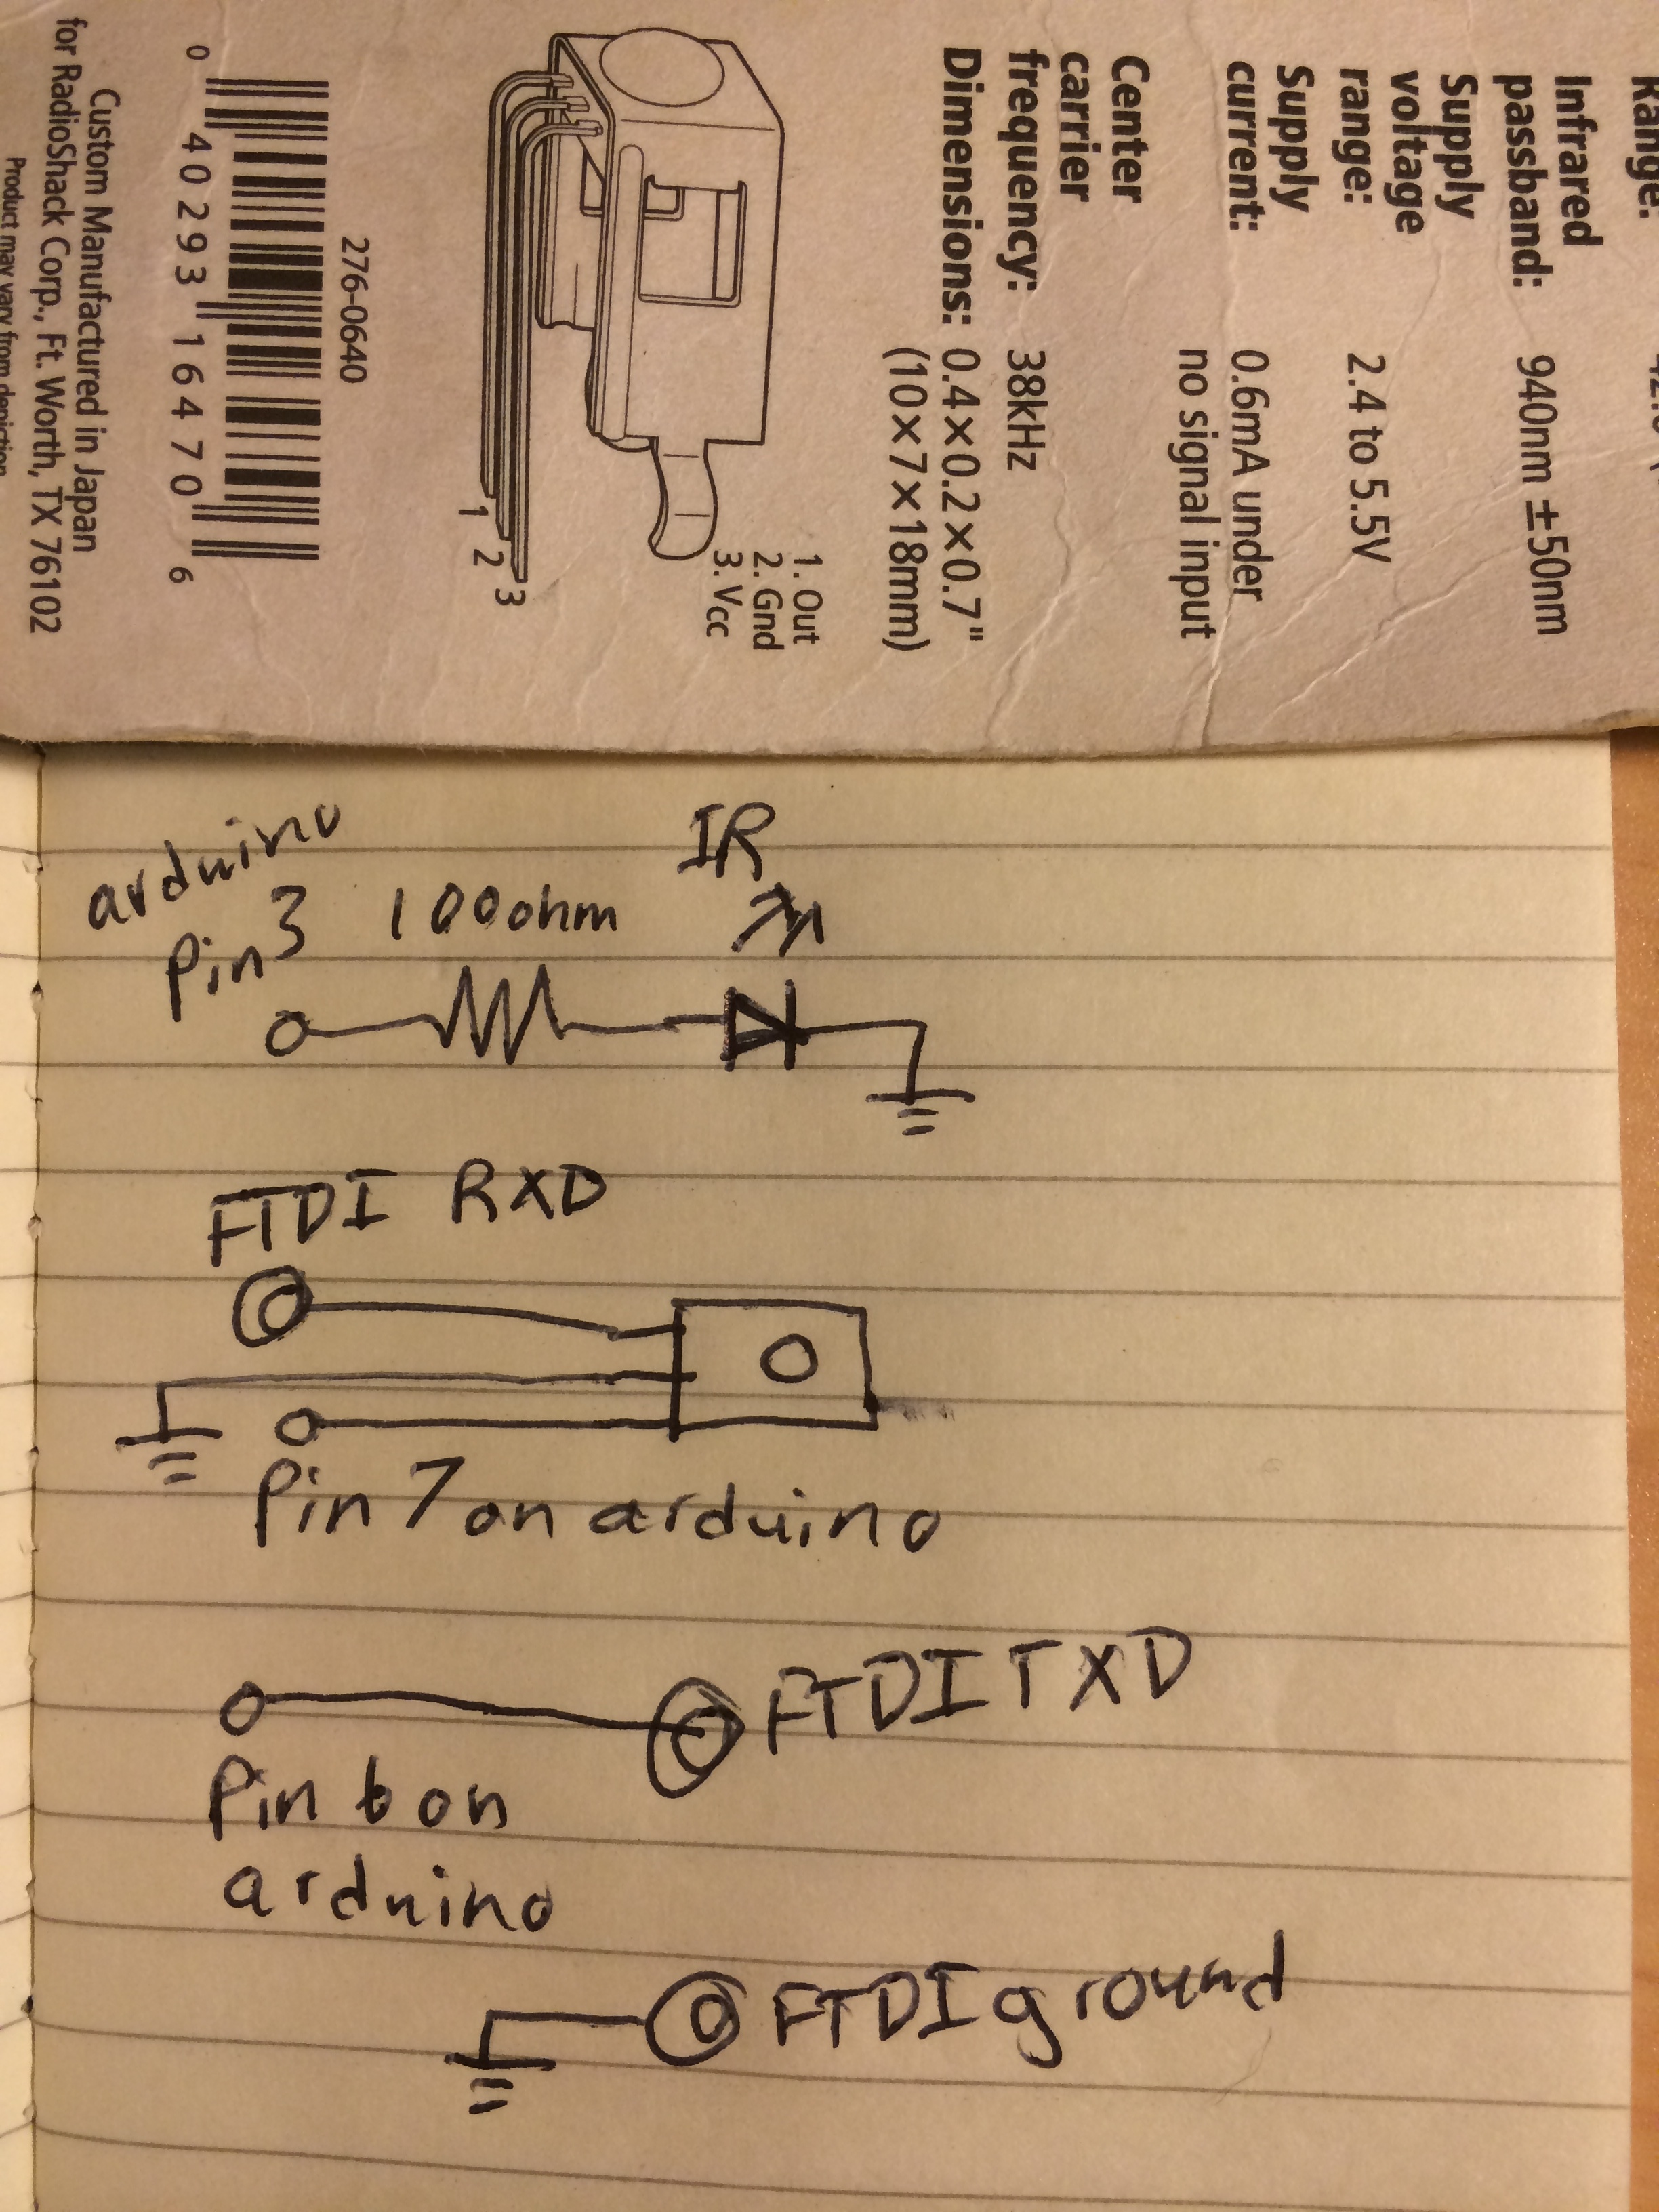 Range:
Infrared
passband: 940nm ±50nm
Supply
voltage
range: 2.4 to 5.5V
Supply
current: 0.6mA under
no signal input
Center
carrier
frequency: 38kHz
Dimensions: 0.4×0.2×0.7"
(10×7×18mm)
1. Out
2. Gnd
3. Vcc
1
2
3
276-0640
0 40293 16470 6
Custom Manufactured in Japan
for RadioShack Corp., Ft. Worth, TX 76102
Product may vary from depiction
arduino
pin 3
100ohm
IR
FTDI RXD
Pin 7 on arduino
FTDI TXD
Pin 6 on
arduino
FTDI ground